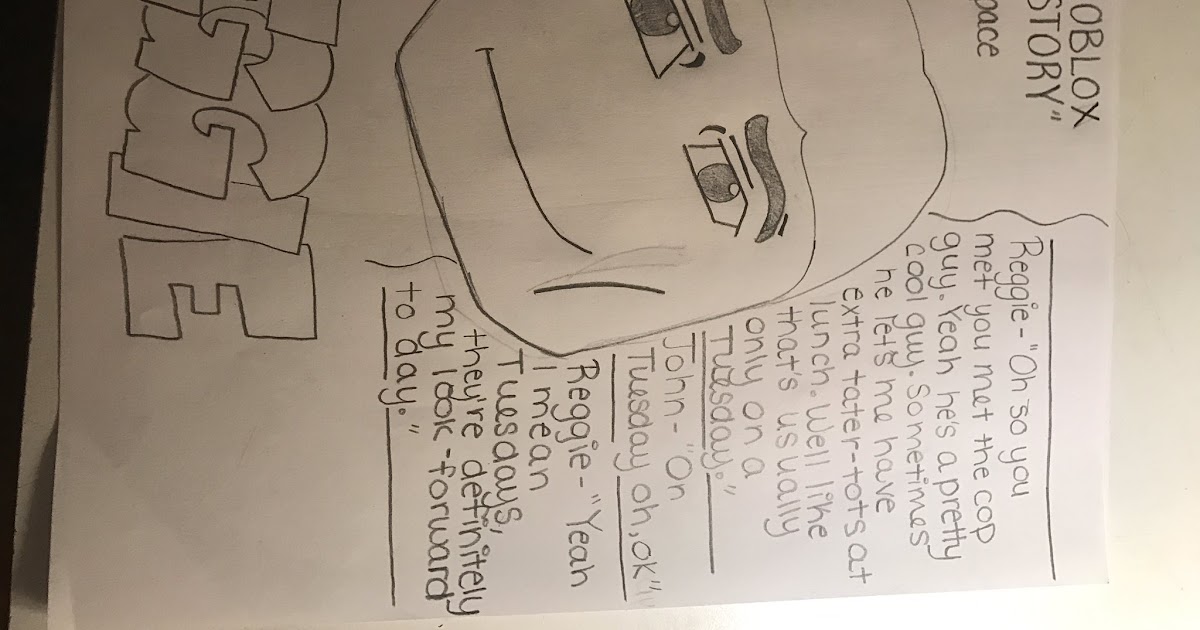 OBLOX
STORY"
pace
Reggie- "Oh so you
met you met the cop
guy. Yeah he's a pretty
cool guy. Sometimes
he let's me have
extra tater-tots at
lunch. Well like
that's usually
only on a
Tuesday."
John- "On
Tuesday oh, ok"
Reggie- "Yeah
I mean
Tuesdays,
they're definitely
my look-forward
to day."
GGIE